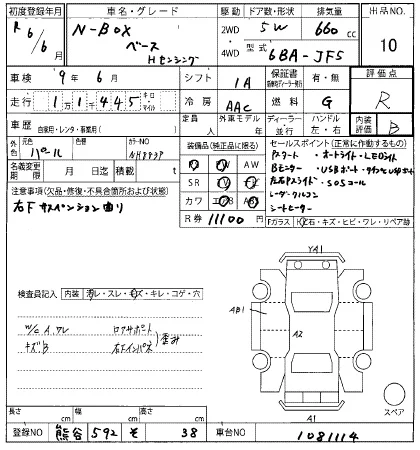 初度登録年月 車名・グレード 駆動 ドア数・形状 排気量 出品NO.
R6/6月 N-BOX ベース Hセンシング 2WD 4WD 5W 660cc 10
型式 6BA-JF5
車検 9年6月 シフト IA 保証書 評価点
走行 11445 キロ マイル 冷房 AAC 燃料 G R
車歴 自家用・レンタ・事業用( ) 定員 人 外車モデル 年 ディーラー 並行 ハンドル 左・右 内装評価 B
外色 元色 パール カラーNO NH883P 装備品(純正品に限る) セールスポイント(正常に作動するもの)
PS PW AW Pスタート ・オートライト・LEDライト
名義変更期限 月 日迄 積載 t SR TV ナビ Bモニター ・USBポート
注意事項(欠品・修復・不具合箇所および現状) カワ エアB ABS 左右Pスライド ・SOSコール
右Fサスペンション曲り レーダークルコン
R券 11100円 シートヒーター
Fガラス 飛石・キズ・ヒビ・ワレ・リペア跡
検査員記入 内装 汚レ・スレ・キズ・キレ・コゲ・穴
W/C A,ワレ ロアサポート
キズB 右Fインパネ 歪み
YA1
AB1
A2
A1
スペア
長さ cm 幅 cm 高さ cm
登録NO 熊谷 592 そ 38 車台NO 1081114